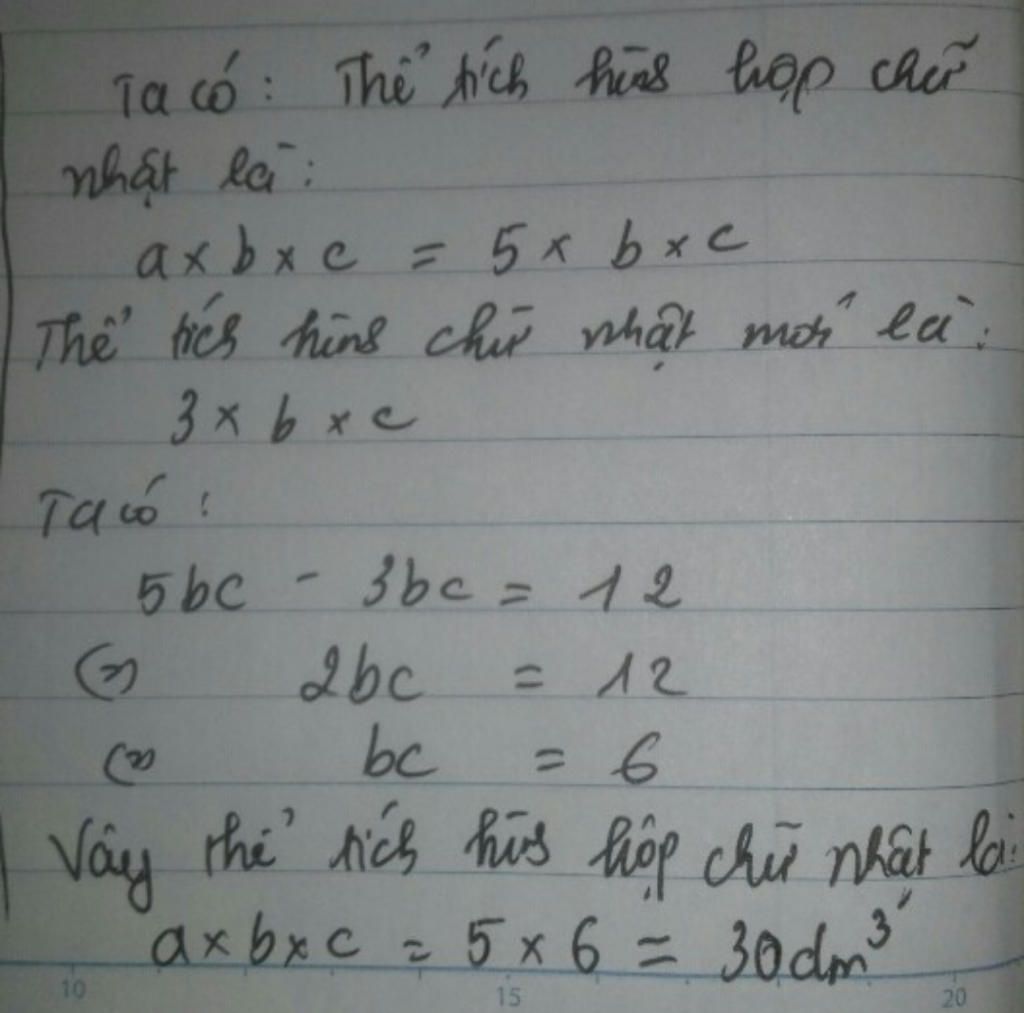 Ta có: Thể tích hình hộp chữ
nhật là:
a × b × c = 5 × b × c
Thể tích hình chữ nhật mới là:
3 × b × c
Ta có:
5bc - 3bc = 12
(=) 2bc = 12
(=) bc = 6
Vây thể tích hình hộp chữ nhật là:
a × b × c = 5 × 6 = 30dm³
10 15 20